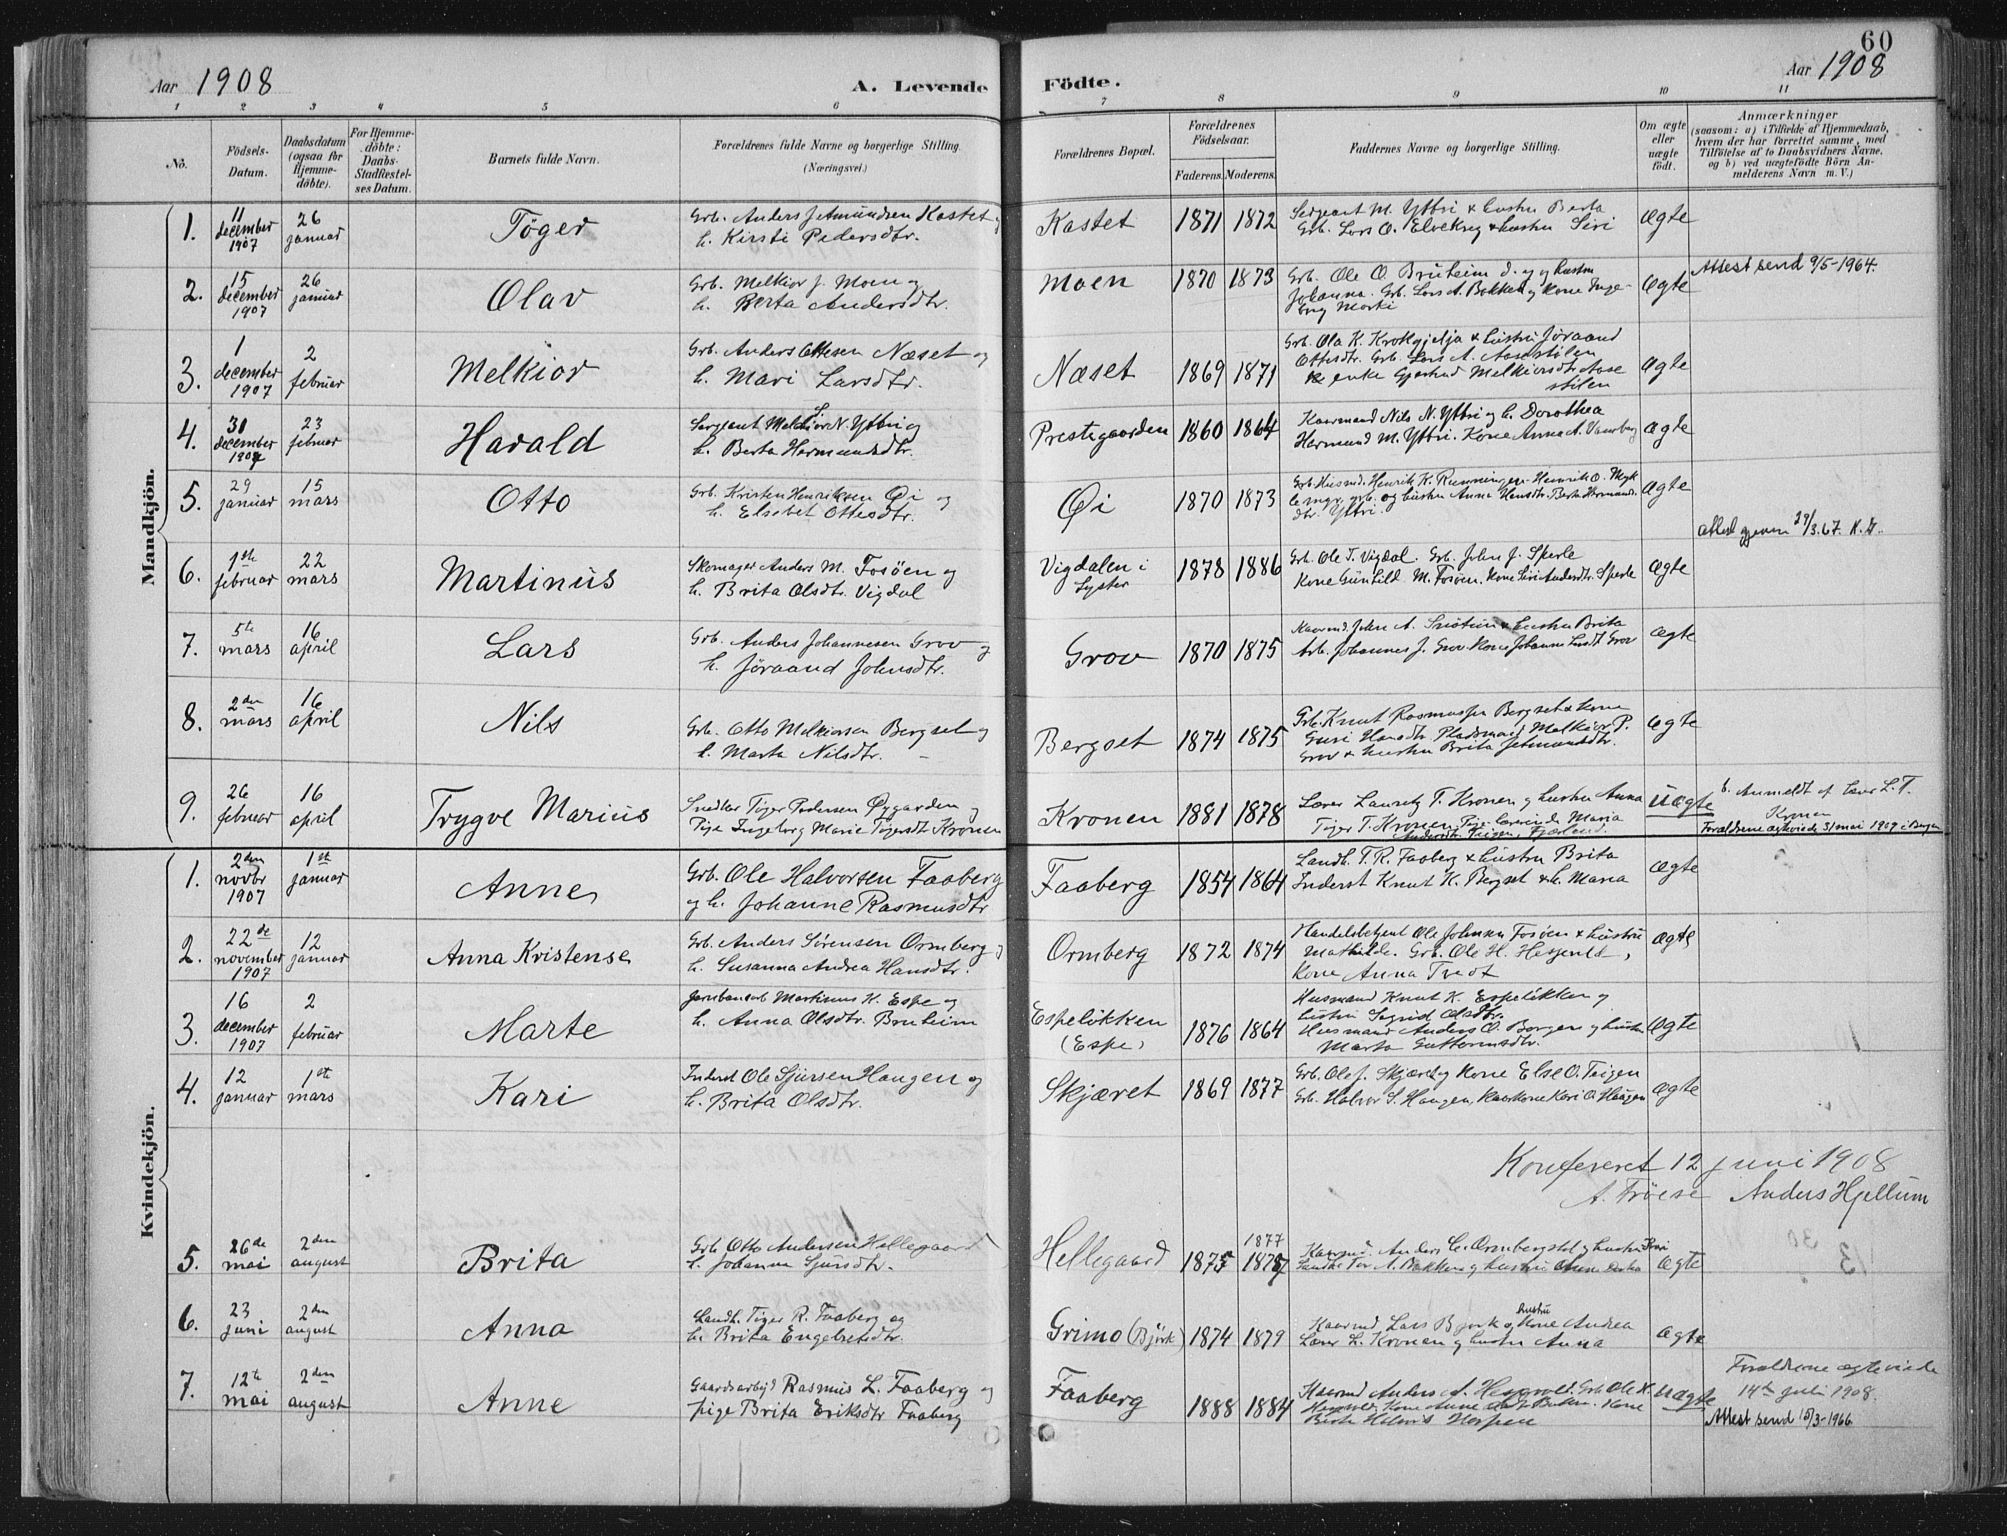 60
Aar 1908
A. Levende
Födte.
Aar 1908
1 2 3 4 5 6 7 8 9 10 11
No.
Födsels-
Datum.
Daabsdatum
(ogsaa for
Hjemme-
döbte).
For Hjemme-
döbte:
Daabs-
Stadfæstel-
ses Datum.
Barnets fulde Navn.
Forældrenes fulde Navne og borgerlige Stilling.
(Næringsvei.)
Forældrenes Bopæl.
Forældrenes
Födselsaar.
Faderens. Moderens.
Faddernes Navne og borgerlige Stilling.
Om ægte
eller
uægte
födt.
Anmærkninger
(saasom: a) i Tilfælde af Hjemmedaab,
hvem der har forrettet samme, med
Tilföielse af to Daabsvidners Navne,
og b) ved uægtefödte Börn An-
melderens Navn m. V.)
Mandkjön.
1. 11 december 1907 26 januar Töger
Grb. Anders Jetmundsen Kastet og
h. Kirsti Pedersdtr.
Kastet 1871 1872
Sergeant M. Yttri & hustru Berta
Grb. Lars O. Elvekrog & hustru Siri
Ægte
2. 15 december 1907 26 januar Olav
Grb. Melkior J. Moen og
h. Berta Andersdtr.
Moen 1870 1873
Grb. Ole O. Bruheim d. y. og hustru
Johanna. Grb. Lars A. Bakken og Kone Inge-
borg Marki
Ægte
Attest send 9/5-1964.
3. 1 december 1907 2 februar Melkior
Grb. Anders Ottesen Næset og
h. Mari Larsdtr.
Næset 1869 1871
Grb. Ola K. Krokgjelja & hustru Jöraand
Ottesdtr. Grb. Lars A. Aasestölen
enke Gjertrud Melkiorsdtr Aase
stölen
Ægte
4. 30 december 1907 23 februar Harald
Sergeant Melkior N. Yttri og
h. Berta Hermundsdtr.
Prestegaarden 1860 1864
Kaarmand Nils N. Yttri og h. Dorothea
Hermund M. Yttri. Kone Anna A.
ægte
5. 29 januar 15 mars Otto
Grb. Kristen Henriksen Öi og
h. Elsebet Ottesdtr.
Öi 1870 1873
Henrik K. Rumningen. Henrik O.
grb. og hustru Anna Hansdtr. Berta Hermunds-
dtr. Yttri.
Ægte
Attest given 29/3.67.
6. 1ste februar 22 mars Martinus
Skomager Anders M. Fosöen og
h. Brita Olsdtr. Vigdal
Vigdalen i
Lyster
1878 1886
Grb. Ole T. Vigdal. Grb. John J. Sperle
Kone Gunhild M. Fosöen. Kone Siri Andersdtr. Sperle
ægte
7. 5te mars 16 april Lars
Grb. Anders Johannesen Grov og
h. Jöraand Johnsdtr.
Grov 1870 1875
Kaarmd. John A. & hustru Brita
Arb. Johannes J. Grov Kone Johanne Grov
Ægte
8. 2den mars 16 april Nils
Grb. Otto Melkiorsen Bergset og
h. Marta Nilsdtr.
Bergset 1874 1875
Grb. Knut Rasmussen Bergset & kone
Guri Hansdtr. Pladsmand Melkior P.
Grov & hustru Brita Jetmundsdtr.
Ægte
9. 26 februar 16 april Trygve Marius
Snedker Töger Pedersen Öygarden og
Pige Ingeborg Marie Tögersdt Kronen
Kronen 1881 1878
Lærer Lauritz T. Kronen og hustru Anna
Töger T. Kronen, Pige lærerinde Maria
Andersdtr. Teigen, Fjærland.
Uægte
b. Anmeldt af Lærer L. T.
Kronen
Forældrene ægteviede 31 mai 1909 i Bergen
Kvindekjön.
1. 2den novbr 1907 1ste januar Anne
Grb. Ole Halvorsen Faaberg
og h. Johanne Rasmusdtr
Faaberg 1854 1864
Landh. T. R. Faaberg & hustru Brita
Inderst Knut K. Bergset & h. Maria
Ægte
2. 22de november 1907 12 januar Anna Kristense
Grb. Anders Sörensen Ormberg og
h. Susanna Andrea Hansdtr.
Ormberg 1872 1874
Handelsbetjent Ole Johnsen Fosöen & hustru
Mathilde. Grb. Ole H.
Kone Anna Tvedt
ægte
3. 16 december 1907 2 februar Marte
Jernbanearb Martinus K. Espe og
h. Anna Olsdtr. Bruheim
Espelökken
(Espe)
1876 1864
Husmand Knut K. Espelökken og
hustru Sigrid Olsdtr.
Husmand Anders O. Borgen og hustru
Marta Guttormsdtr.
Ægte
4. 12 januar 1ste mars Kari
Inderst Ole Sjursen Haugen og
h. Brita Olsdtr.
Skjæret 1869 1877
Grb. Ole J. Skjæret og Kone Else O. Teigen
Grb. Halvor S. Haugen, Kaarkone Kari O. Haugen
ægte
Konfereret 12 juni 1908
A. Tröese Anders Hjellum
5. 26de mai 2den august Brita
Grb Otto Andersen Hellegaard
h. Johanna Sjursdtr.
Hellegaard 1877
Kaarmd. Anders C. Ormbergstöl og hustru Brita
A. Bakken og hustru
ægte
6. 23 juni 2den august Anna
Landh. Töger R. Faaberg og
h. Brita Engebretsdtr.
Grimo (Björk) 1874 1879
hustru
Kaarmd Lars Bjørk & Kone Andrea
Lærer L. Kronen og hustru Anna
ægte
7. 12te mai 2den august Anne
Gaardsarbejd Rasmus L. Faaberg og
pige Brita Eriksdtr Faaberg
Faaberg 1888 1884
Kaarmd Anders A. Grb. Ole K.
Kone Anne Kone
Uægte
Forældrene ægteviede
14de juli 1908.
Attest send 15/3-1966